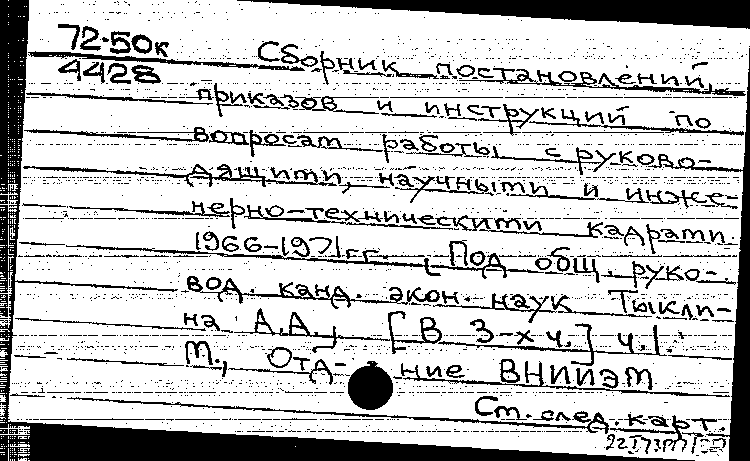 72-50к
4428
Сборник постановлений,
приказов и инструкций по
вопросам работы с руково-
дящими, научными и инже-
нерно-техническими кадрами.
1966-1971гг. Под общ. руко-
вод. канд. экон. наук Тыкли-
на А.А., [В 3-х ч.] ч.1.
М., Отд-ние ВНИИЭМ
См. след. карт.